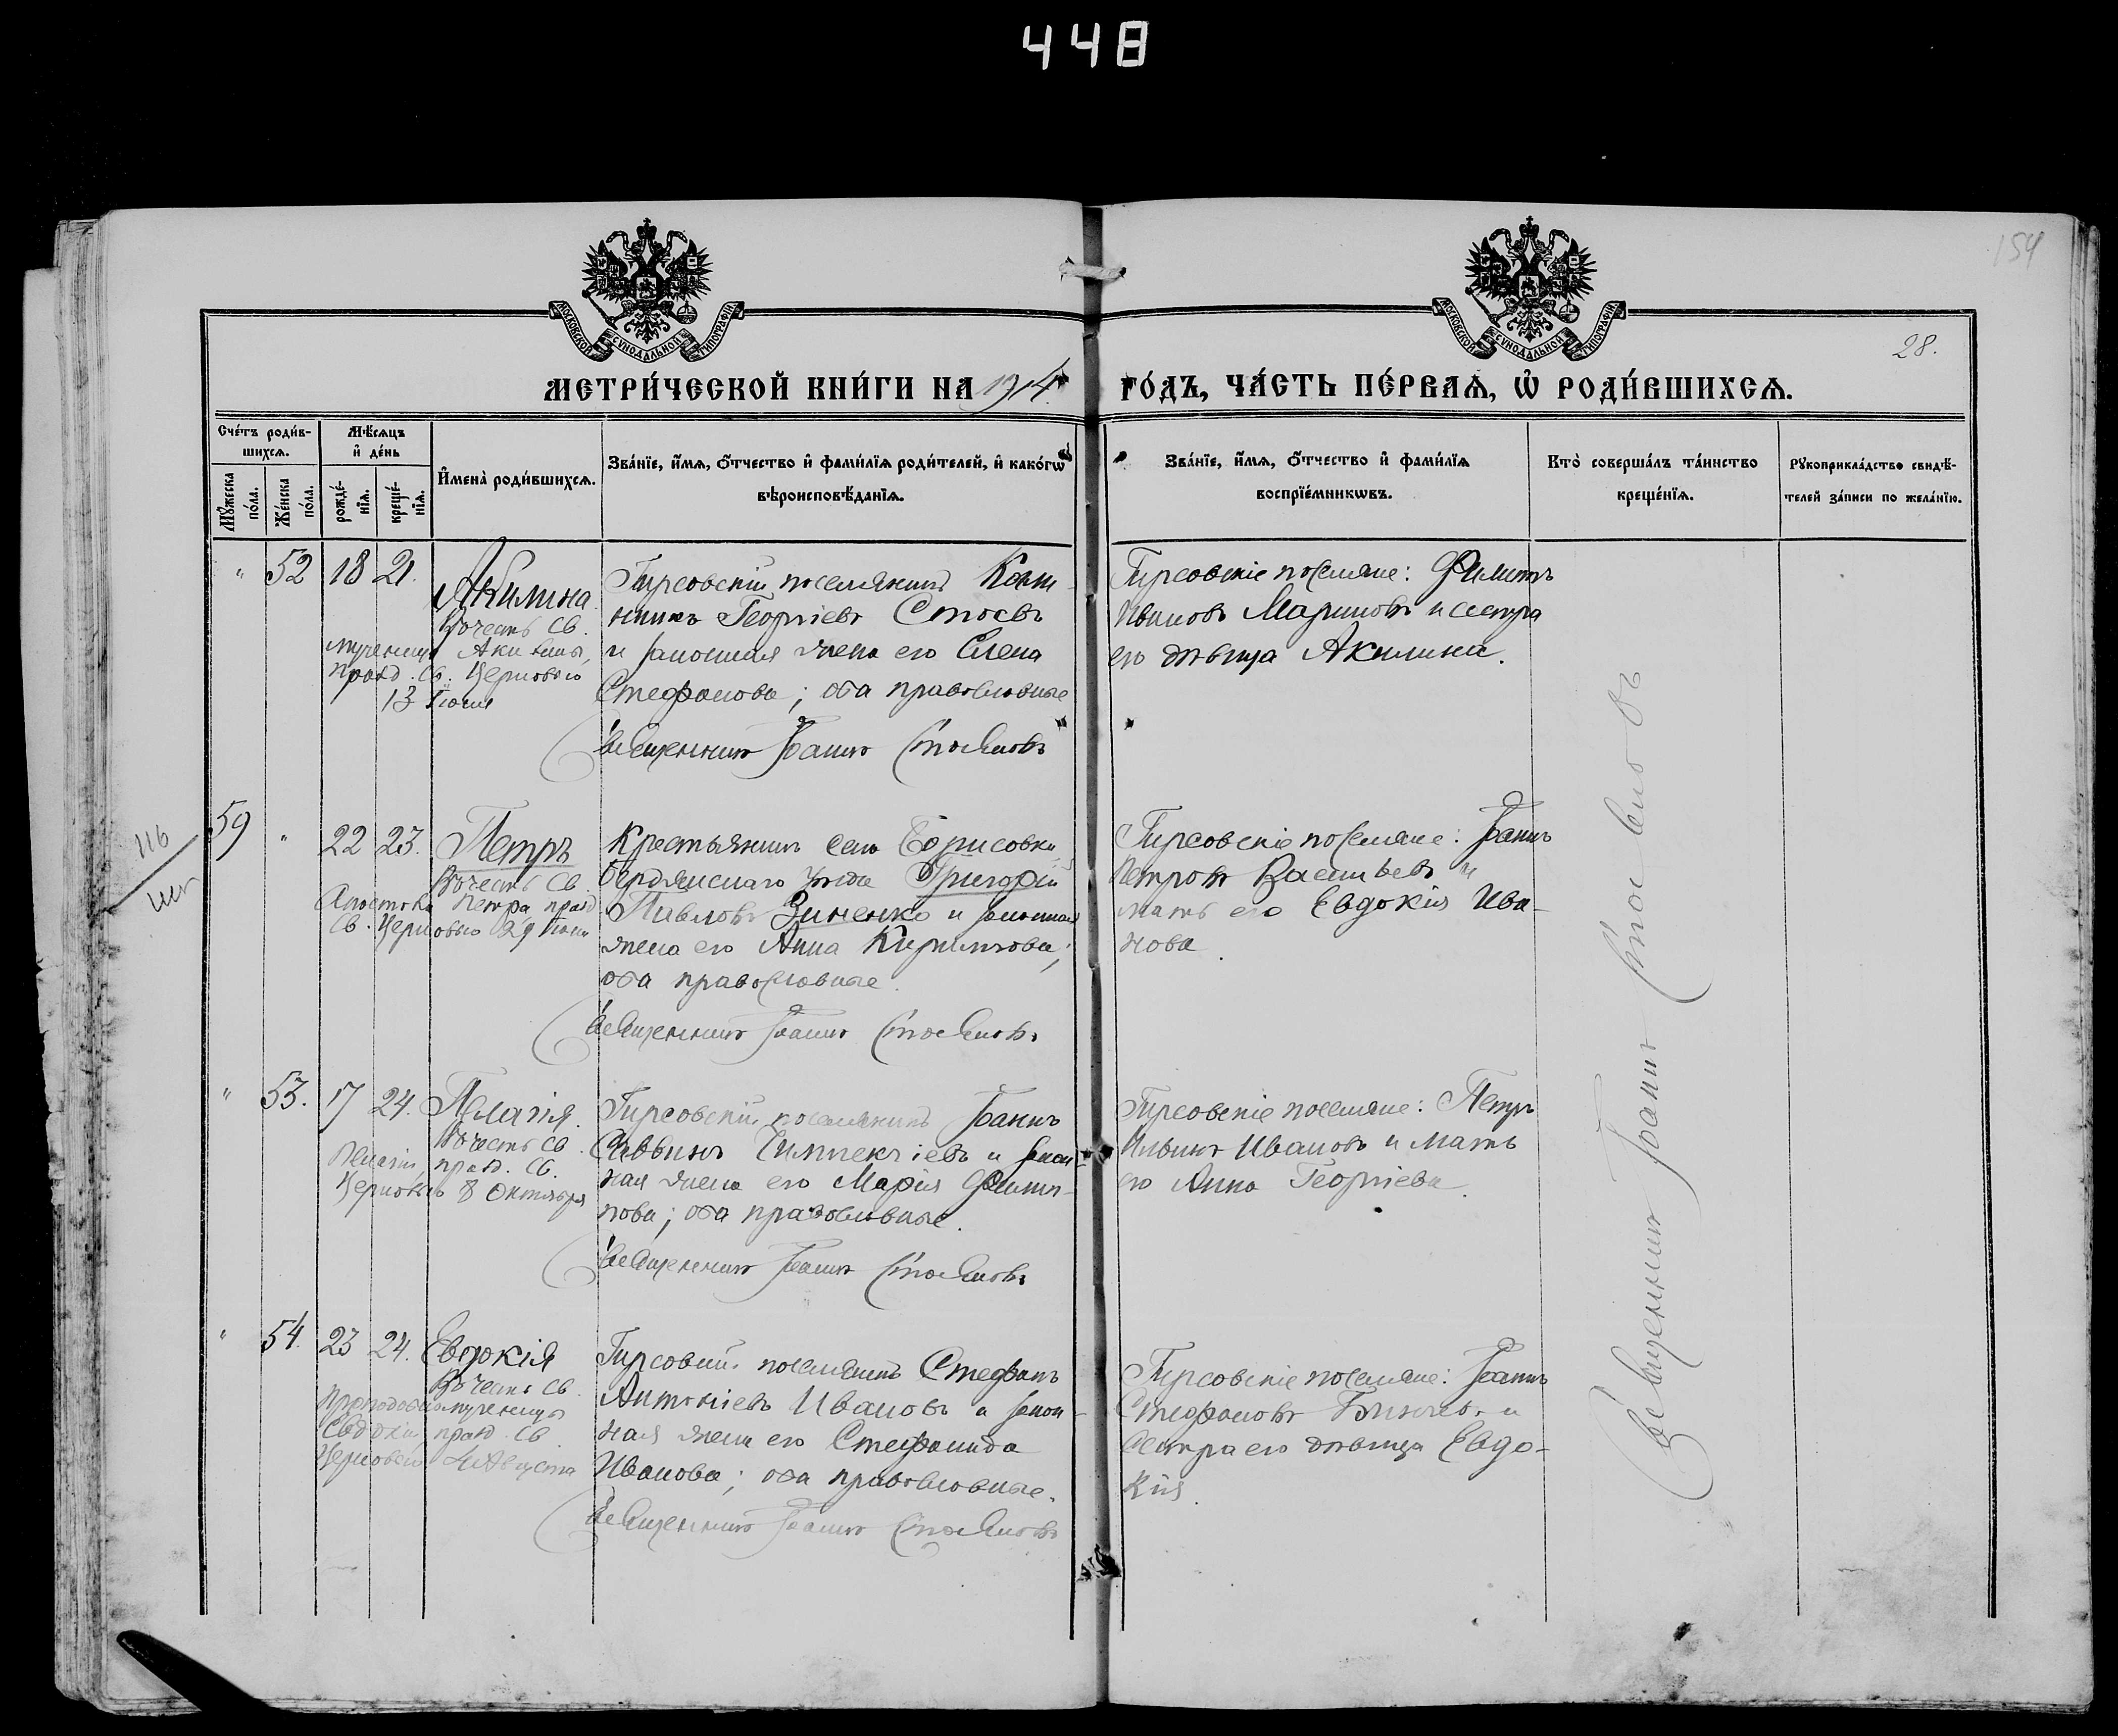 448
154
28.
МОСКОВСКОЙ СУНОДАЛЬНОЙ ТИПОГРАФІИ
МОСКОВСКОЙ СУНОДАЛЬНОЙ ТИПОГРАФІИ
МЕТРИ́ЧЕСКОЙ КНИ́ГИ НА 1914 ГО́ДЪ, ЧА́СТЬ ПЕ́РВАѦ, Ѡ҆ РОДИ́ВШИХСѦ.
Сче́тъ роди́в-
шихсѧ.
Мꙋ́жеска по́ла.
Же́нска по́ла.
Мѣ́сѧцъ
и҆ де́нь
рожде́-
нїѧ.
креще́-
нїѧ.
И҆мена̀ роди́вшихсѧ.
Зва́нїе, и҆́мѧ, ѻ҆́тчество и҆ фами́лїѧ роди́телей, и҆ како́гѡ
вѣроисповѣ́данїѧ.
Зва́нїе, и҆́мѧ, ѻ҆́тчество и҆ фами́лїѧ
воспрїе́мникѡвъ.
Кто̀ соверша́лъ та́инство
креще́нїѧ.
Рꙋкоприкла́дство свидѣ́-
телей за́писи по жела́нїю.
" 52 18 21.
Акилина
Въ честь св.
мученицы Акилины,
празд. св. Церковью
13 Іюня
Гирсовскій поселянинъ Конст-
Георгіевъ Стоевъ
и законная жена его Елена
Стефанова; оба православные
Священникъ Іоаннъ Стояновъ
Гирсовскіе поселяне: Филиппъ
Ивановъ Мариновъ и сестра
его дѣвица Акилина.
59 " 22 23.
Петръ
Въ честь св.
Апостола Петра празд
св. Церковью 29 Іюня
116
Крестьянинъ села Борисовки
Бердянскаго уѣзда Григорій
Павловъ Зиненко и законная
жена его Анна Кириллова;
оба православные.
Священникъ Іоаннъ Стояновъ
Гирсовскіе поселяне: Іоаннъ
Петровъ Васильевъ и
мать его Евдокія Ива-
нова.
" 53. 17 24.
Пелагія.
Въ честь св.
Пелагіи, празд. св.
Церковью 8 Октября
Гирсовскій поселянинъ Іоаннъ
Саввинъ и закон-
ная жена его Марія Филип-
пова; оба православные.
Священникъ Іоаннъ Стояновъ
Гирсовскіе поселяне: Петръ
Ильинъ Ивановъ и мать
его Анна Георгіева.
" 54. 23 24.
Евдокія
Въ честь св.
Преподобномученицы
Евдокіи празд. св.
Церковью 4 Августа
Гирсовскій поселянинъ Стефанъ
Антоніевъ Ивановъ и закон-
ная жена его Стефанида
Иванова; оба православные.
Священникъ Іоаннъ Стояновъ
Гирсовскіе поселяне: Іоаннъ
Стефановъ и
сестра его дѣвица Евдо-
кія.
Священникъ Іоаннъ Стояновъ